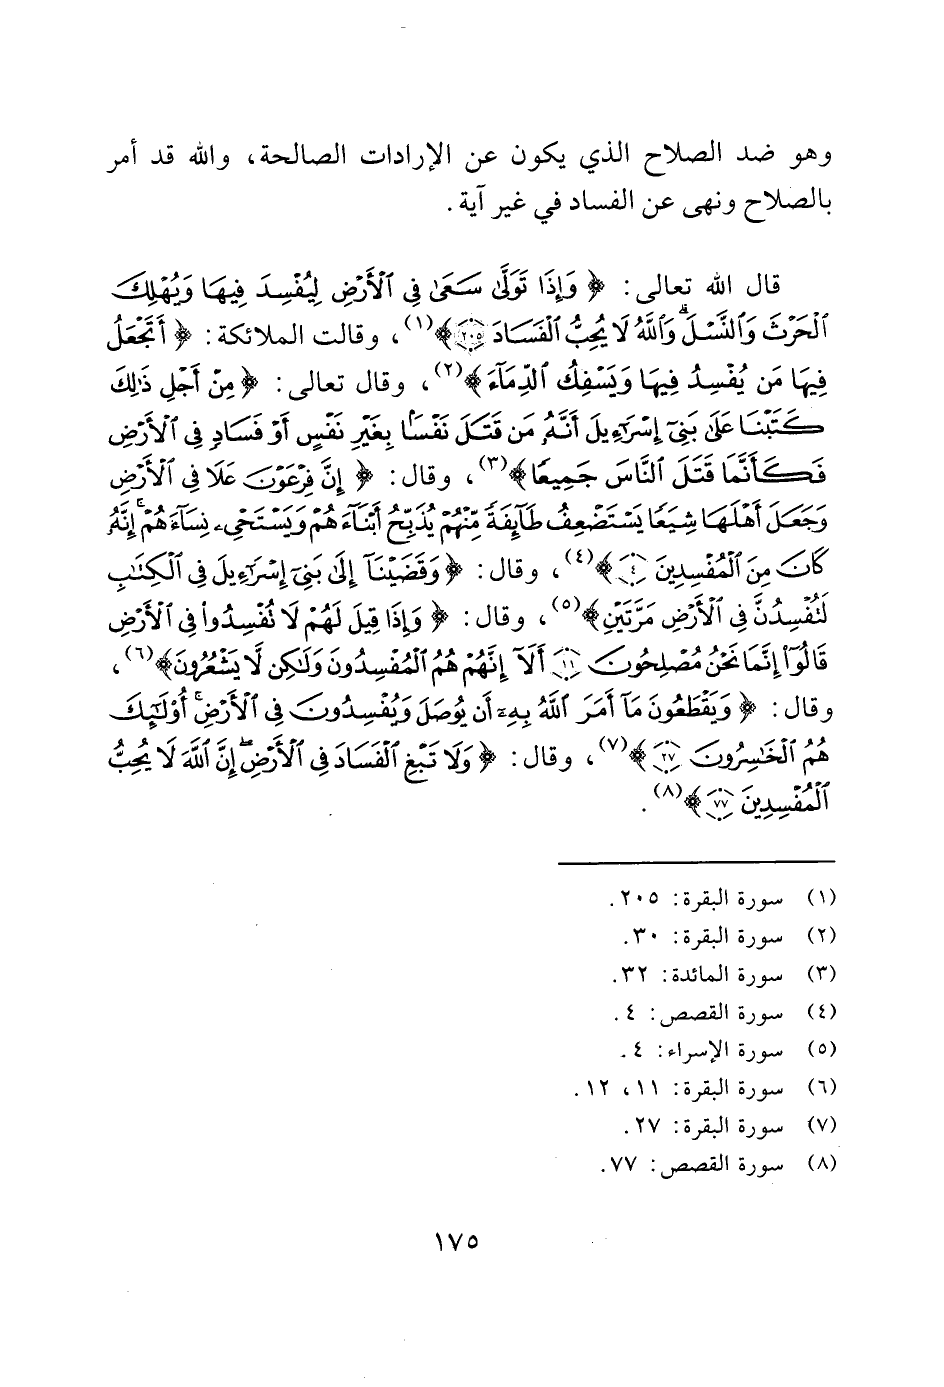 وهو ضد الصلاح الذي يكون عن الإرادات الصالحة، والله قد أمر
بالصلاح ونهى عن الفساد في غير آية.
قال الله تعالى: ﴿ وَإِذَا تَوَلَّىٰ سَعَىٰ فِي ٱلْأَرْضِ لِيُفْسِدَ فِيهَا وَيُهْلِكَ
ٱلْحَرْثَ وَٱلنَّسْلَۗ وَٱللَّهُ لَا يُحِبُّ ٱلْفَسَادَ ٢٠٥﴾(١)، وقالت الملائكة: ﴿ أَتَجْعَلُ
فِيهَا مَن يُفْسِدُ فِيهَا وَيَسْفِكُ ٱلدِّمَآءَ﴾(٢)، وقال تعالى: ﴿ مِنْ أَجْلِ ذَٰلِكَ
كَتَبْنَا عَلَىٰ بَنِيٓ إِسْرَٰٓءِيلَ أَنَّهُۥ مَن قَتَلَ نَفْسًۢا بِغَيْرِ نَفْسٍ أَوْ فَسَادٍ فِي ٱلْأَرْضِ
فَكَأَنَّمَا قَتَلَ ٱلنَّاسَ جَمِيعًا﴾(٣)، وقال: ﴿ إِنَّ فِرْعَوْنَ عَلَا فِي ٱلْأَرْضِ
وَجَعَلَ أَهْلَهَا شِيَعًا يَسْتَضْعِفُ طَآئِفَةً مِّنْهُمْ يُذَبِّحُ أَبْنَآءَهُمْ وَيَسْتَحْيِۦ نِسَآءَهُمْۚ إِنَّهُۥ
كَانَ مِنَ ٱلْمُفْسِدِينَ ٤﴾(٤)، وقال: ﴿ وَقَضَيْنَآ إِلَىٰ بَنِيٓ إِسْرَٰٓءِيلَ فِي ٱلْكِتَٰبِ
لَتُفْسِدُنَّ فِي ٱلْأَرْضِ مَرَّتَيْنِ﴾(٥)، وقال: ﴿ وَإِذَا قِيلَ لَهُمْ لَا تُفْسِدُوا۟ فِي ٱلْأَرْضِ
قَالُوٓا۟ إِنَّمَا نَحْنُ مُصْلِحُونَ ١١ أَلَآ إِنَّهُمْ هُمُ ٱلْمُفْسِدُونَ وَلَٰكِن لَّا يَشْعُرُونَ﴾(٦)،
وقال: ﴿ وَيَقْطَعُونَ مَآ أَمَرَ ٱللَّهُ بِهِۦٓ أَن يُوصَلَ وَيُفْسِدُونَ فِي ٱلْأَرْضِۚ أُو۟لَٰٓئِكَ
هُمُ ٱلْخَٰسِرُونَ ٢٧﴾(٧)، وقال: ﴿ وَلَا تَبْغِ ٱلْفَسَادَ فِي ٱلْأَرْضِۖ إِنَّ ٱللَّهَ لَا يُحِبُّ
ٱلْمُفْسِدِينَ ٧٧﴾(٨).
(١) سورة البقرة: ٢٠٥.
(٢) سورة البقرة: ٣٠.
(٣) سورة المائدة: ٣٢.
(٤) سورة القصص: ٤.
(٥) سورة الإسراء: ٤.
(٦) سورة البقرة: ١١، ١٢.
(٧) سورة البقرة: ٢٧.
(٨) سورة القصص: ٧٧.
١٧٥